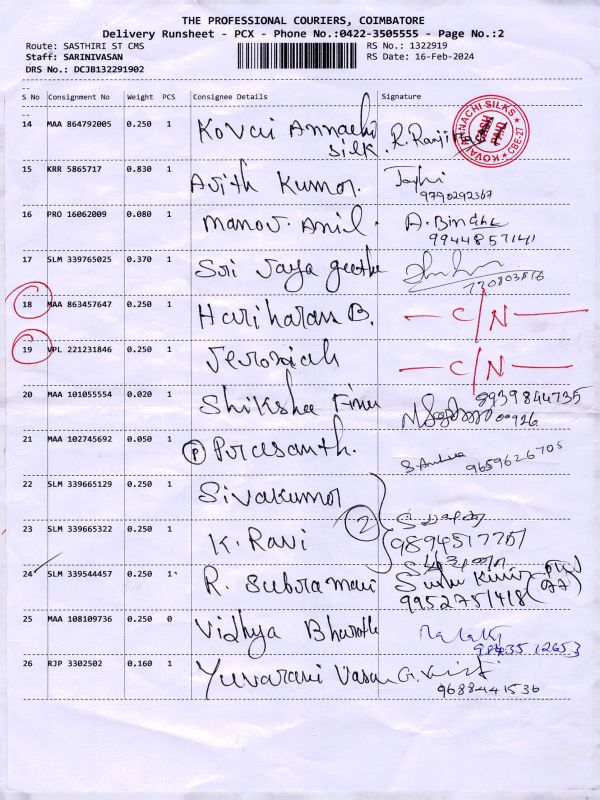 THE PROFESSIONAL COURIERS, COIMBATORE
Delivery Runsheet - PCX - Phone No.:0422-3505555 - Page No.:2
Route: SASTHIRI ST CMS RS No.: 1322919
Staff: SARINIVASAN RS Date: 16-Feb-2024
DRS No.: DCJB132291902
S No Consignment No Weight PCS Consignee Details Signature
14 MAA 864792005 0.250 1 Kovai Annachi R. Ranji
Silk
KOVAI ANNACHI SILKS CASH PAID CBE-27
15 KRR 5865717 0.830 1 Ajith Kumar.
9790292367
16 PRO 16062009 0.080 1 Manov. Anil. A. Bindhu
9944857141
17 SLM 339765025 0.370 1 Sri Jaya geetha
18 MAA 863457647 0.250 1 Hariharan B. C/N
19 VPL 221231846 0.250 1 Jeromiah C/N
20 MAA 101055554 0.020 1 Shiksha 9939844735
21 MAA 102745692 0.050 1 P Prasanth. 9659626705
22 SLM 339665129 0.250 1 Sivakumar
23 SLM 339665322 0.250 1 K. Ravi 2
24 SLM 339544457 0.250 1 R. Subramani
9952751418
25 MAA 108109736 0.250 0 Vidhya Bharathi
26 RJP 3302502 0.160 1 Yuvarani Vasan
9688441536